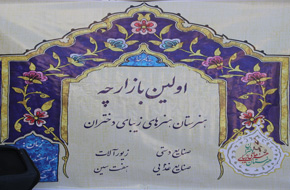 اولین بازارچه
هنرستان هنرهای زیبای دختران
صنایع دستی زیورآلات
صنایع غذایی هفت سین